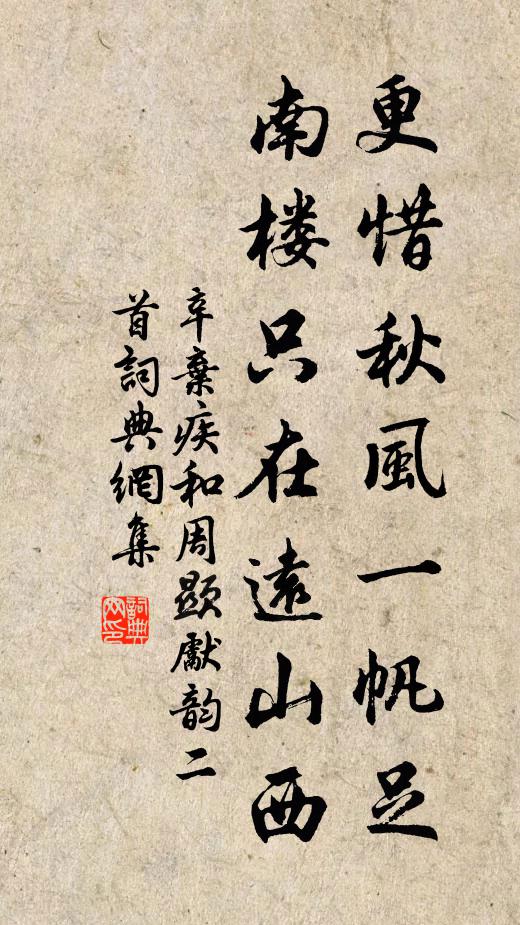 更惜秋風一帆足
南楼只在遠山西
辛棄疾和周顯獻韵二
首詞典網集
詞典
网印